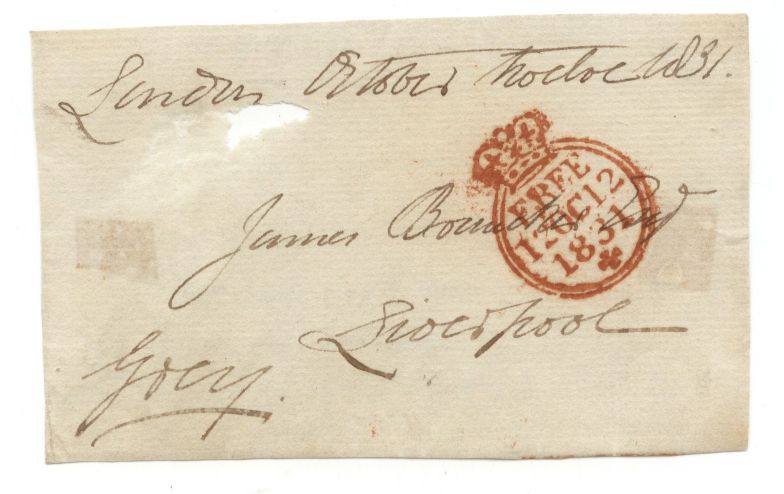 London October twelve 1831.
FREE
12 OC 12
1831
James Esq
Liverpool
Grey.